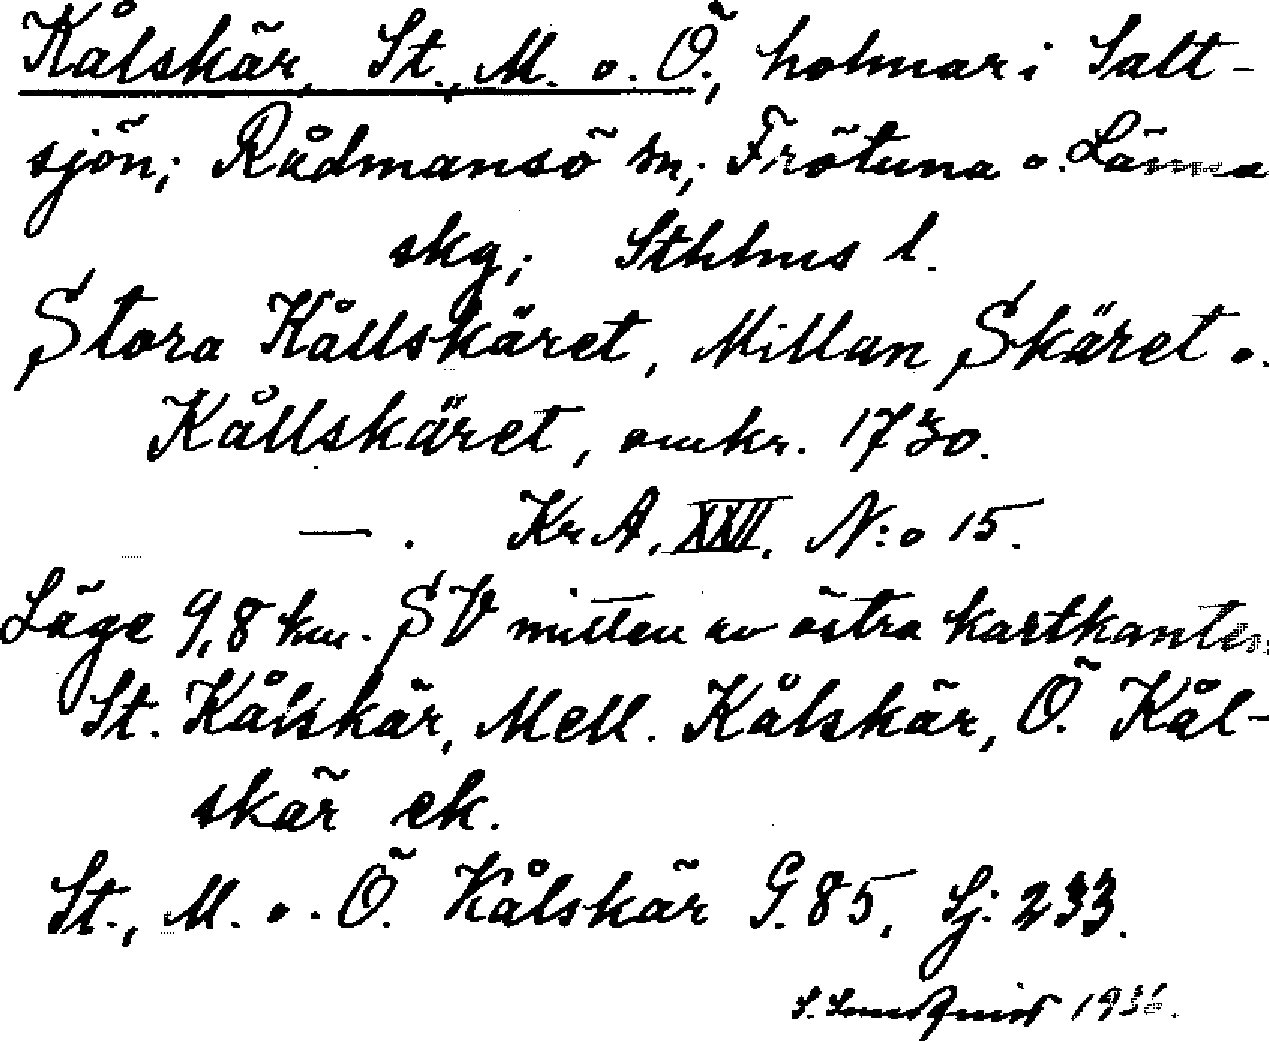 Kålskär, St., M. o. Ö., holmar i Salt-
sjön; Rådmansö sn; Frötuna o. Länna
skg; Sthlms l.
Stora Kållskäret, Millan Skäret o.
Kållskäret, omkr. 1730.
— . KrA. XXVI. N:o 15.
Läge 9,8 km. SV mitten av östra kartkanten
St. Kålskär, Mell. Kålskär, Ö. Kål-
skär ek.
St., M. o. Ö. Kålskär G. 85, Sj: 233.
S. Sundquist